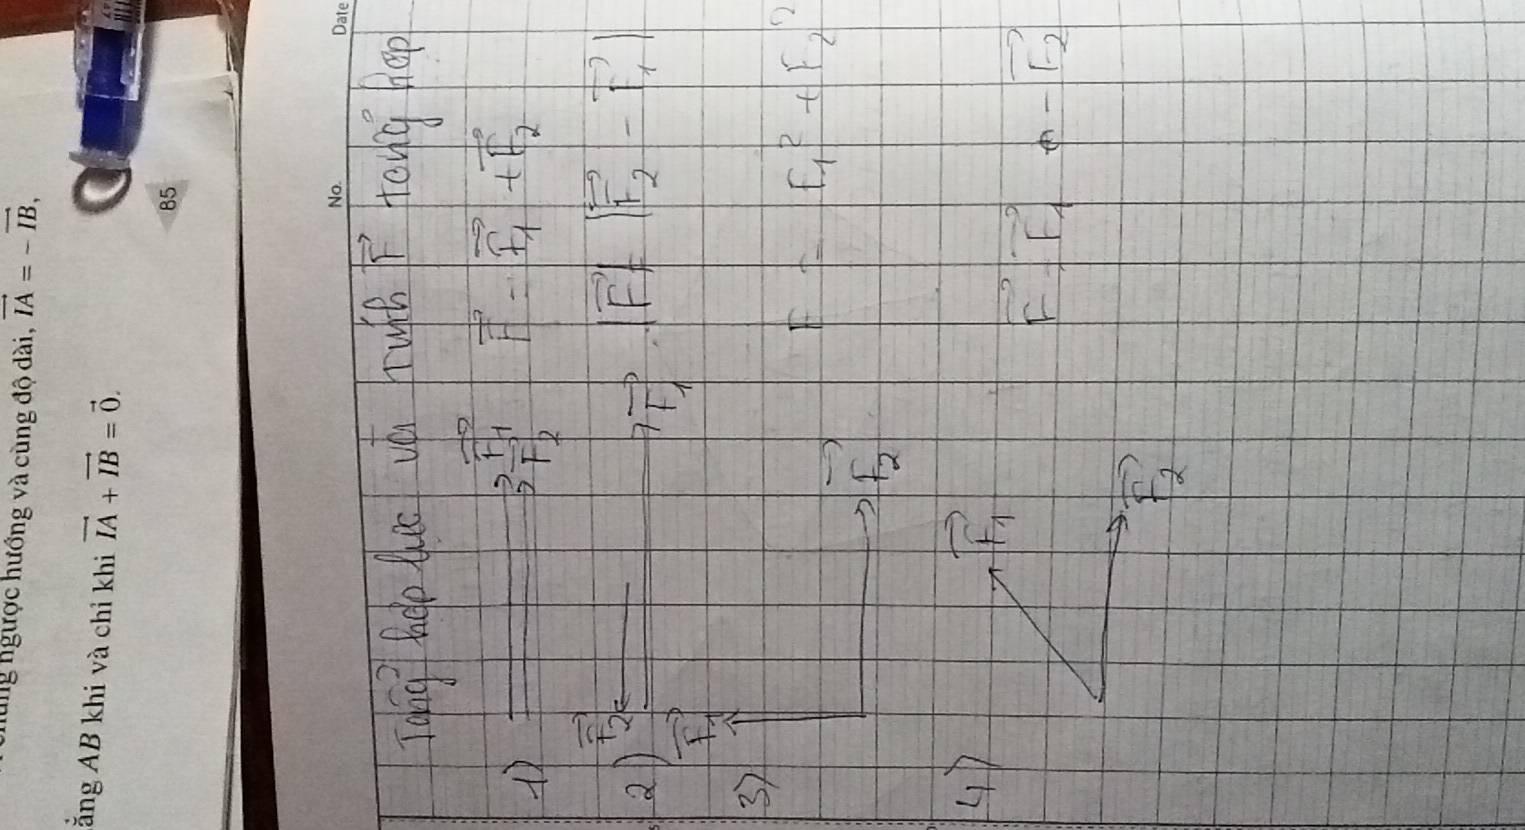 ngược hướng và cùng độ dài, IA⃗ = - IB⃗,
ẳng AB khi và chỉ khi IA⃗ + IB⃗ = 0⃗.
85
No.
Date
Tổng hợp lực và tính F⃗ tổng hợp
1) F⃗₁ F⃗₂ F⃗ = F⃗₁ + F⃗₂
2) F⃗₂ F⃗₁ |F⃗| = |F⃗₂ - F⃗₁|
3) F⃗₁ F⃗₂ F = F₁² + F₂²
4) F⃗₁ F⃗₂ F⃗ = F⃗₁ - F⃗₂